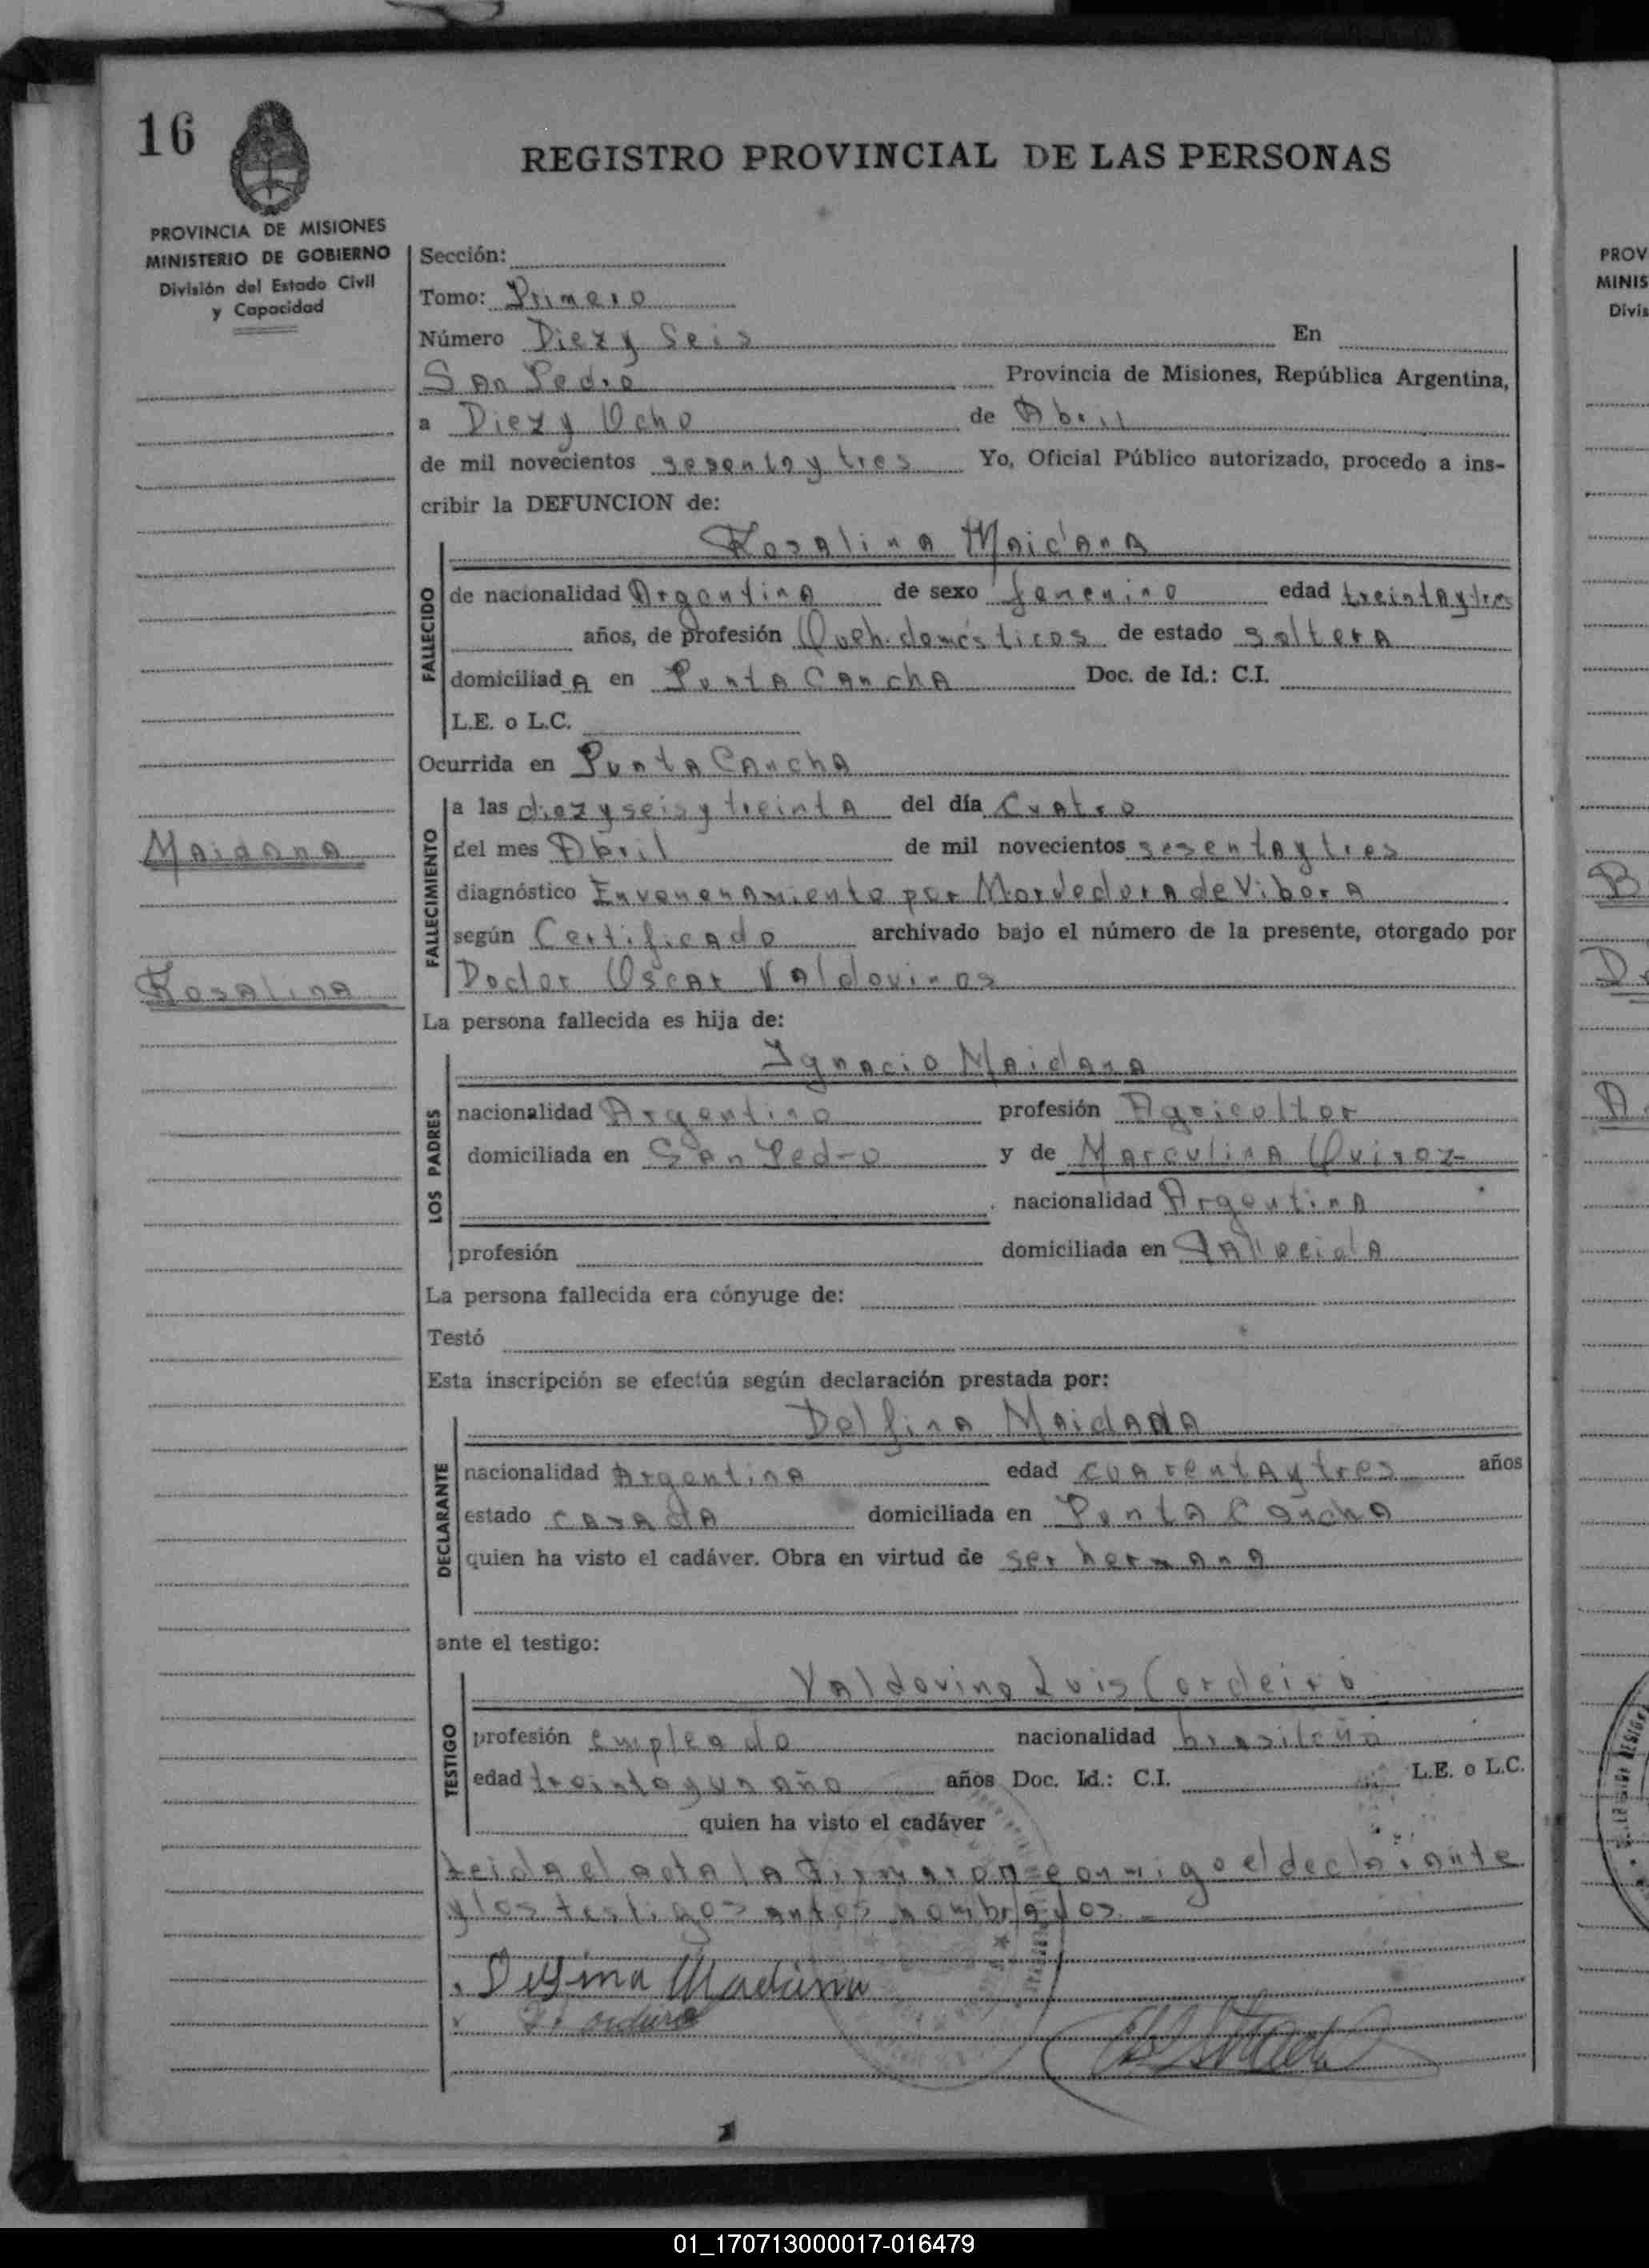 16
REGISTRO PROVINCIAL DE LAS PERSONAS
PROVINCIA DE MISIONES
MINISTERIO DE GOBIERNO
División del Estado Civil
y Capacidad
Sección:
Tomo: Primero
Número Diez y Seis En
San Pedro Provincia de Misiones, República Argentina,
a Diez y Ocho de Abril
de mil novecientos sesenta y tres Yo, Oficial Público autorizado, procedo a ins-
cribir la DEFUNCION de:
Rosalina Maidana
FALLECIDO
de nacionalidad Argentina de sexo femenino edad treinta y tres
años, de profesión Queh. domésticos de estado soltera
domiciliada en Punta Cancha Doc. de Id.: C.I.
L.E. o L.C.
Ocurrida en Punta Cancha
FALLECIMIENTO
a las diez y seis y treinta del día Cuatro
Maidana
del mes Abril de mil novecientos sesenta y tres
diagnóstico Envenenamiento por Mordedura de Vibora
según Certificado archivado bajo el número de la presente, otorgado por
Rosalina
Doctor Oscar Valdovinos
La persona fallecida es hija de:
Ignacio Maidana
LOS PADRES
nacionalidad Argentino profesión Agricultor
domiciliada en San Pedro y de Marculina Quiroz
nacionalidad Argentina
profesión domiciliada en Fallecida
La persona fallecida era cónyuge de:
Testó
Esta inscripción se efectúa según declaración prestada por:
Delfina Maidana
DECLARANTE
nacionalidad Argentina edad cuarenta y tres años
estado casada domiciliada en Punta Cancha
quien ha visto el cadáver. Obra en virtud de ser hermana
ante el testigo:
Valdovino Luis Cordeiro
TESTIGO
profesión empleado nacionalidad brasileño
edad treinta y un año años Doc. Id.: C.I. L.E. o L.C.
quien ha visto el cadáver
Leida el acta la firmaron conmigo el declarante
y los testigos antes nombrados.
Delfina
PROV
MINIS
Divis
B
D
A
01_170713000017-016479